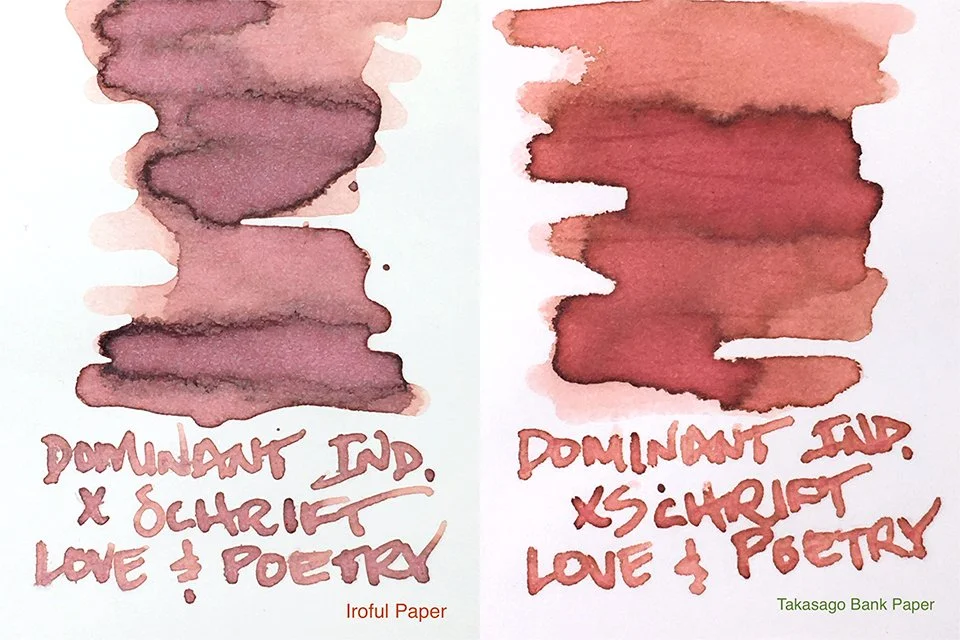 DOMINANT IND.
X SCHRIFT
LOVE & POETRY
Iroful Paper
DOMINANT IND.
XSCHRIFT
LOVE & POETRY
Takasago Bank Paper